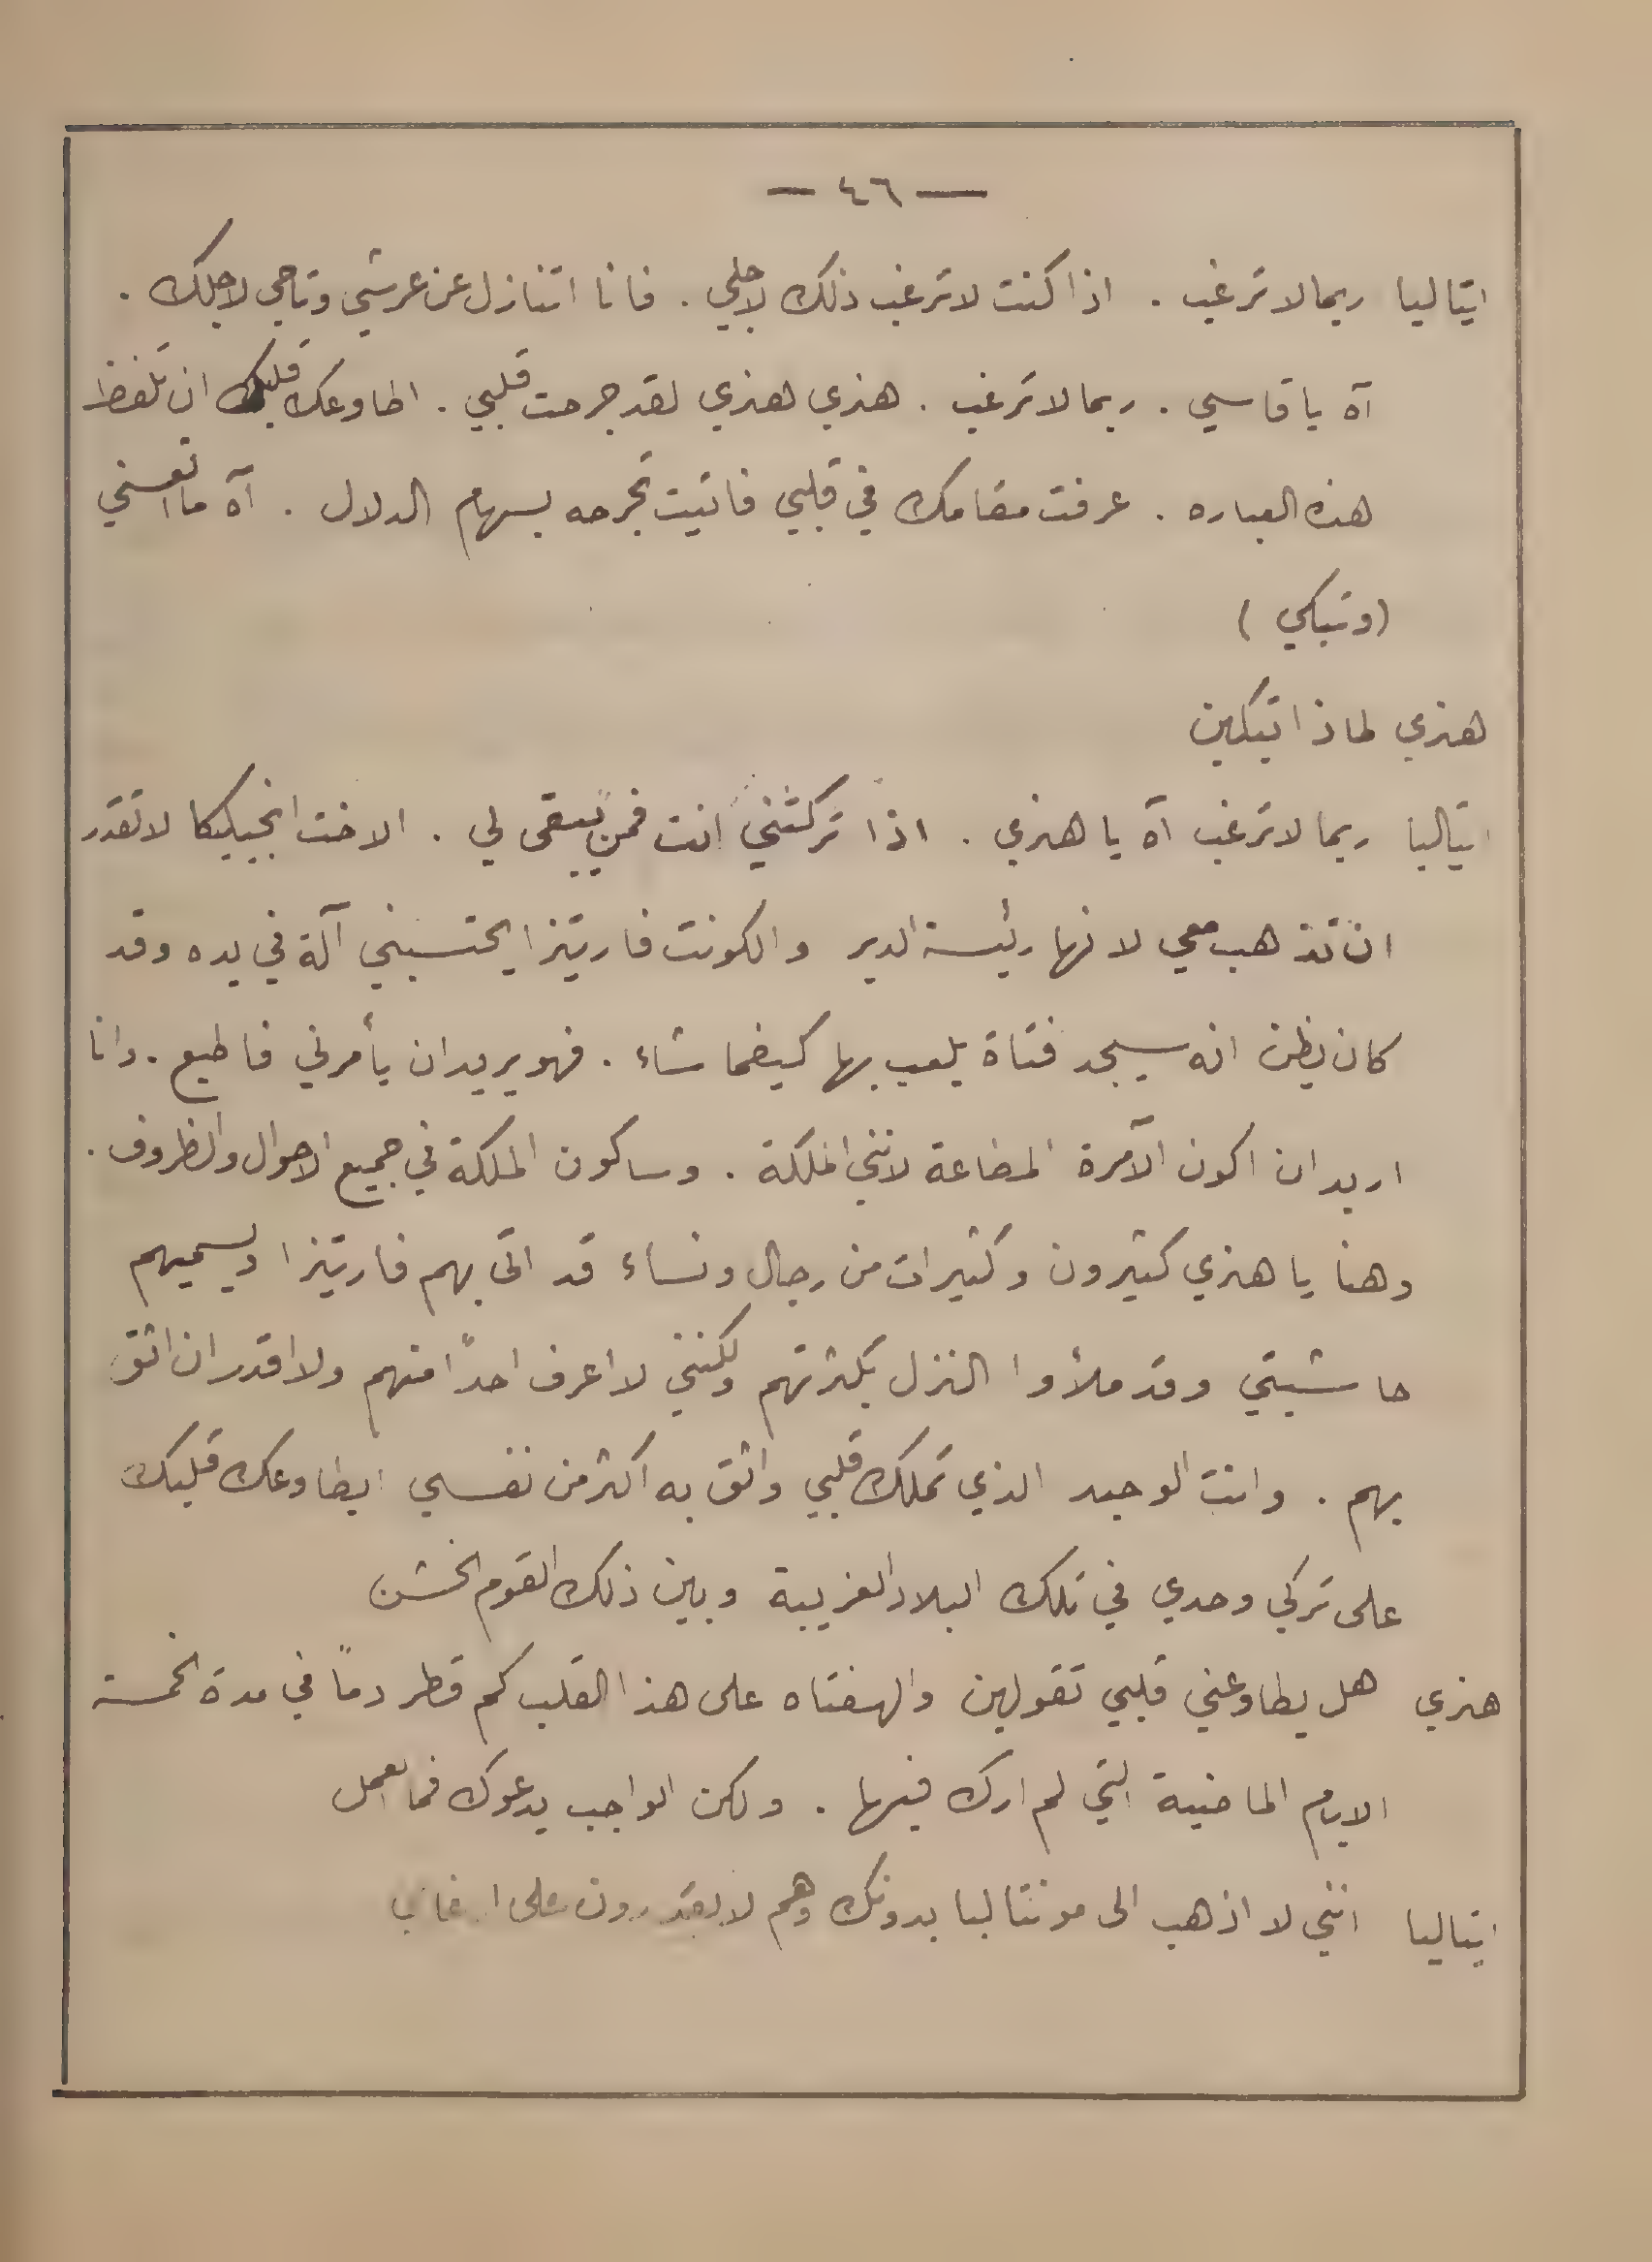 — ٤٦ —
ايتاليا ربما لا ترغب . اذا كنت لا ترغب ذلك لاجلي . فانا اتنازل عن عرشي وتاجي لاجلك .
آه يا قاسي . ربما لا ترغب . هنري هنري لقد جرحت قلبي . اطاوعك قلبك ان تلفظ
هذه العباره . عرفت مقامك في قلبي فاتيت تجرحه بسهام الدلال . آه ما اتعسني
(وتبكي )
هنري لماذا تبكين
ايتاليا ربما لا ترغب آه يا هنري . اذا تركتني انت فمن يبقى لي . الاخت انجيليكا لا تقدر
ان تذهب معي لانها رئيسة الدير والكونت فاريتزا يحتسبني آلة في يده وقد
كان يظن انه سيجد فتاة يلعب بها كيفما شاء . فهو يريد ان يأمرني فاطيع . وانا
اريد ان اكون الآمرة المطاعة لانني الملكة . وساكون الملكة في جميع الاحوال والظروف .
وهنا يا هنري كثيرون وكثيرات من رجال ونساء قد اتى بهم فاريتزا ويسميهم
حاشيتي وقد ملأوا النزل بكثرتهم ولكنني لا اعرف احداً منهم ولا اقدر ان اثق
بهم . وانت الوحيد الذي تملك قلبي واثق به اكثر من نفسي ايطاوعك قلبك
على تركي وحدي في تلك البلاد الغريبة وبين ذلك القوم الخشن
هنري هل يطاوعني قلبي تقولين والهفتاه على هذا القلب كم قطر دماً في مدة الخمسة
الايام الماضية التي لم ارك فيها . ولكن الواجب يدعوك فما العمل
ايتاليا انني لا اذهب الى مونتاليا بدونك وهم لا يقدرون على ارغامي